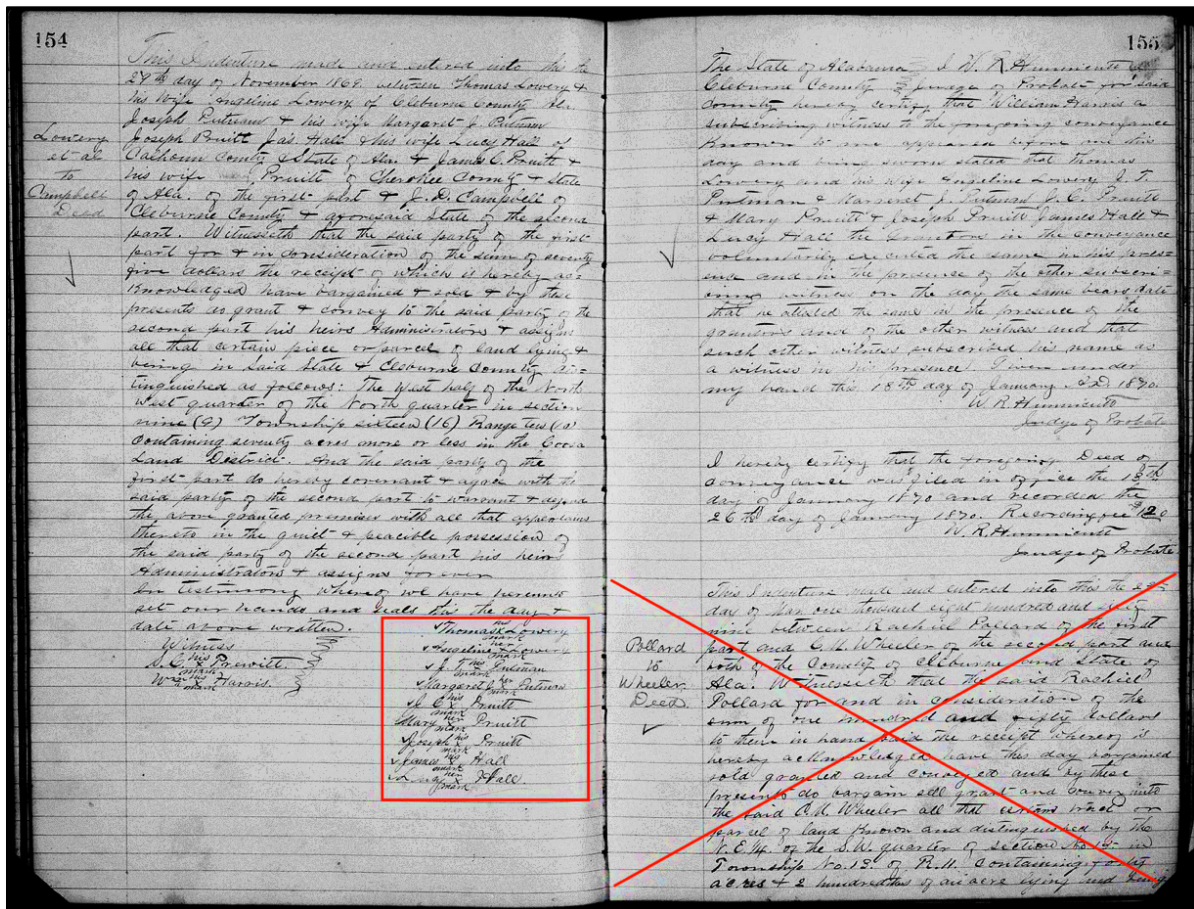 154
This Indenture made and entered into this the
29th day of November 1869. between Thomas Lowery &
his wife Angeline Lowery of Cleburne County Ala.
Joseph Putnam & his wife Margaret J. Putnam
Joseph Pruitt Jas. Hall & his wife Lucy Hall of
Calhoun County & State of Ala. & James C. Pruitt &
his wife Pruitt of Cherokee County & State
of Ala. of the first part & J. D. Campbell of
Cleburne County & aforesaid State of the second
part. Witnesseth that the said party of the first
part for & in consideration of the sum of seventy
five dollars the receipt of which is hereby ac-
knowledged have bargained & sold & by these
presents do grant & convey to the said party of the
second part his heirs Administrators & assigns
all that certain piece or parcel of land lying &
being in said State & Cleburne County dis-
tinguished as follows: The West half of the North
West quarter of the North quarter in section
nine (9) Township sixteen (16) Range ten (10)
Containing seventy acres more or less in the Coosa
Land District. And the said party of the
first part do hereby covenant & agree with the
said party of the second part to warrant & defend
the above granted premises with all that appertains
thereto in the quiet & peacible possession of
the said party of the second part his heirs
Administrators & assigns forever
In testimony whereof we have hereunto
set our hands and seals this the day &
date above written.
Lowery
et al
to
Campbell
Deed
Witness
S. C. his x mark Prewitt.
Wm his x mark Harris.
Thomas his x mark Lowery
Angeline her x mark Lowery
J. T. his x mark Putman
Margaret J. her x mark Putman
J. C. his x mark Pruitt
Mary her x mark Pruitt
Joseph his x mark Pruitt
James his x mark Hall
Lucy her x mark Hall
155
The State of Alabama I W. R. Hunnicutt
Cleburne County Judge of Probate for said
County hereby certify that William Harris a
subscribing witness to the foregoing conveyance
known to me appeared before me this
day and being sworn stated that Thomas
Lowery and his wife Angeline Lowery J. T.
Putman & Margaret J. Putman J. C. Pruitt
& Mary Pruitt & Joseph Pruitt James Hall &
Lucy Hall the Grantors in the conveyance
voluntarily executed the same in his pres-
ence and in the presence of the other subscri-
bing witness on the day the same bears date
that he attested the same in the presence of the
grantors and of the other witness and that
such other witness subscribed his name as
a witness in his presence. Given under
my hand this 18th day of January AD 1870.
W. R. Hunnicutt
Judge of Probate
I hereby certify that the foregoing Deed of
conveyance was filed in office the 18th
day of January 1870 and recorded the
26th day of January 1870. Recording fee $1.20
W. R. Hunnicutt
Judge of Probate
Pollard
to
Wheeler
Deed.
This Indenture made and entered into this the
day of Mar. one thousand eight hundred and sixty
nine between Rachiel Pollard of the first
part and C. M. Wheeler of the second part are
both of the County of Cleburne and State of
Ala. Witnesseth that the said Rachiel
Pollard for and in consideration of the
sum of one hundred and fifty dollars
to them in hand paid the receipt whereof is
hereby acknowledged have this day bargained
sold granted and conveyed and by these
presents do bargain sell grant and convey unto
the said C. M. Wheeler all that certain tract or
parcel of land known and distinguished by the
N. E. 1/4 of the S. W. quarter of section No. in
Township No. 13. of R. 11. containing forty
acres & 2 hundredths of an acre lying and being